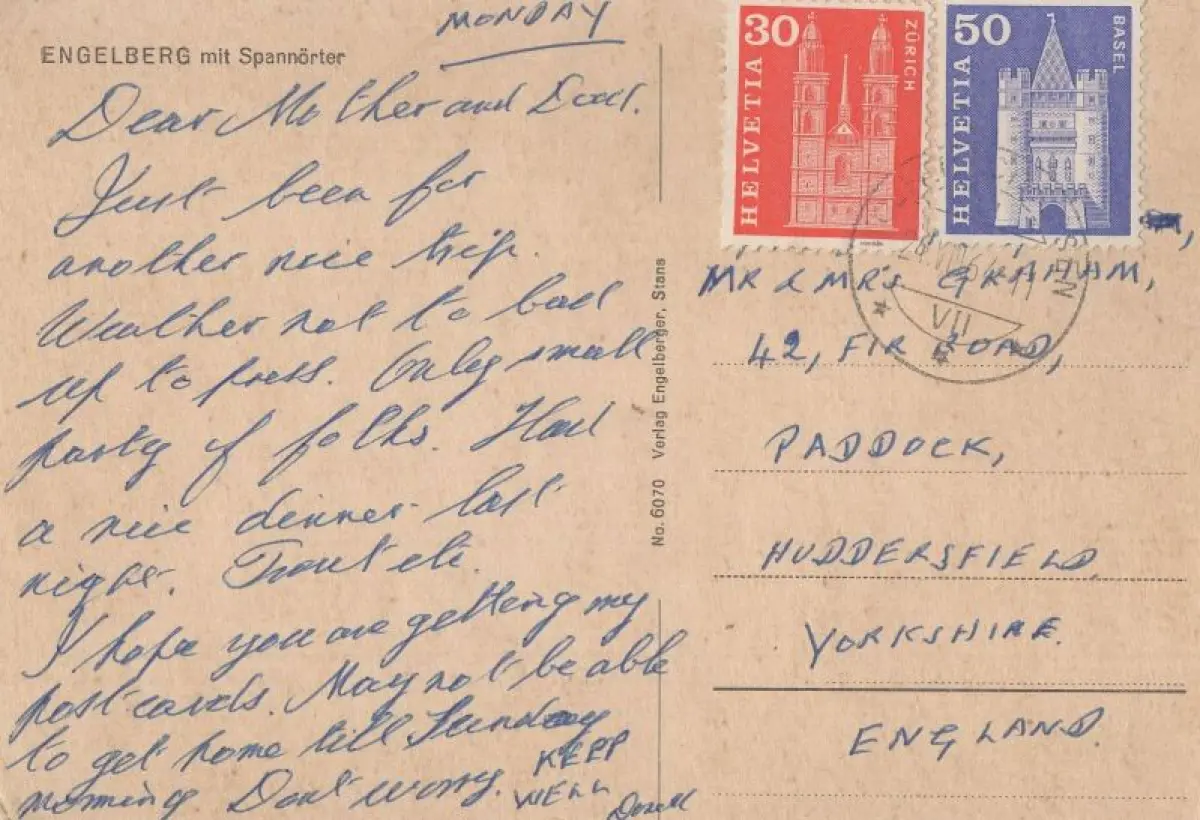 MONDAY
ENGELBERG mit Spannörter
Dear Mother and Dad.
Just been for
another nice trip.
Weather not to bad
up to press. Only small
party of folks. Had
a nice dinner last
night. Trout etc.
I hope you are getting my
post cards. May not be able
to get home till Sunday
morning Don't worry.
KEEP
WELL
No. 6070 Verlag Engelberger, Stans
30
ZÜRICH
HELVETIA
50
BASEL
HELVETIA
VII
MR & MRS GRAHAM,
42, FIR ROAD,
PADDOCK,
HUDDERSFIELD
YORKSHIRE.
ENGLAND.